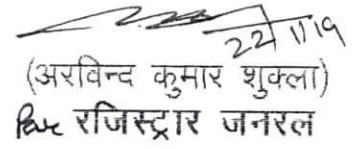 22/11/19
(अरविन्द कुमार शुक्ला)
रजिस्ट्रार जनरल